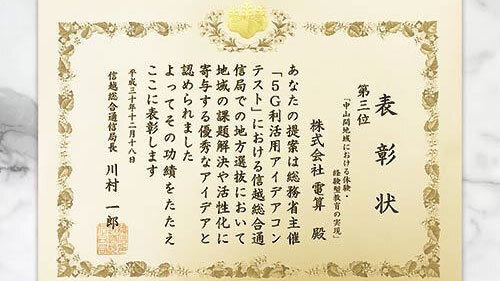 表彰状
第三位
「中山間地域における体験
経験型教育の実現」
株式会社 電算 殿
あなたの提案は総務省主催
「5G利活用アイデアコン
テスト」における信越総合通
信局での地方選抜において
地域の課題解決や活性化に
寄与する優秀なアイデアと
認められました
よってその功績をたたえ
ここに表彰します
平成三十年十二月十八日
信越総合通信局長 川村 一郎